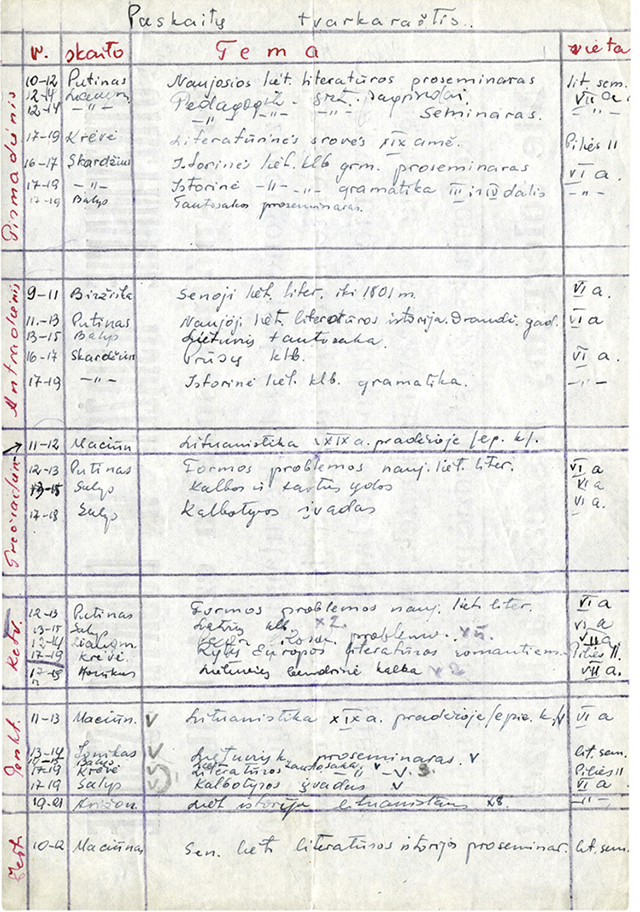 Paskaitų tvarkaraštis.
v. skaito Tema vieta
Pirmadienis
10-12 Putinas Naujosios liet. literatūros proseminaras lit. sem.
12-14 Pedagogų VII a
12-14 —"— —"— —"— —"— Seminaras.
17-19 Krėvė Literatūrinės srovės XIX amž. Pilies II
16-17 Skardžius Istorinės liet. klb grm. proseminaras VI a.
17-19 —"— Istorinė —"— —"— gramatika III ir IV dalis —"—
17-19 Balys Tautosakos proseminaras.
Antradienis
9-11 Biržiška Senoji liet. liter. iki 1801 m. VI a.
11-13 Putinas Naujoji liet. literatūros istorija. Draudž. gad. VI a
13-15 Balys Lietuvių tautosaka.
16-17 Skardžius Prūsų klb. VI a.
17-19 —"— Istorinė liet. klb. gramatika. —"—
Trečiadien.
11-12 Mačiūn Lituanistika XIX a. pradžioje /ep. k/.
12-13 Putinas Formos problemos nauj. liet. liter. VI a
13-15 Salys Kalbos ir tautos ydos VI a
17-18 Salys Kalbotyros įvadas VI a.
Ketv.
12-13 Putinas Formos problemos nauj. liet. liter. VI a
13-15 Saly Latvių klb. x2. VI a
12-14 problemos VII a
17-19 Krėvė. Rytų Europos literatūros romantizm. Pilies II.
17-19 Lietuvių bendrinė kalba x2 VII a.
Penkt.
11-13 Mačiūn. v Lituanistika XIX a. pradžioje /epic. k/ VI a
13-14 Jonikas v Lietuvių k. proseminaras. v lit. sem.
Balys tautosaka v
17-19 Krėvė Literatūros —"— —v— 3. Pilies II
17-19 Salys v Kalbotyros įvadas v VI a
19-21 Liet istorija lituanistams x8. —"—
Šešt.
10-12 Mačiūnas Sen. liet. literatūros istorijos proseminar. lit. sem.